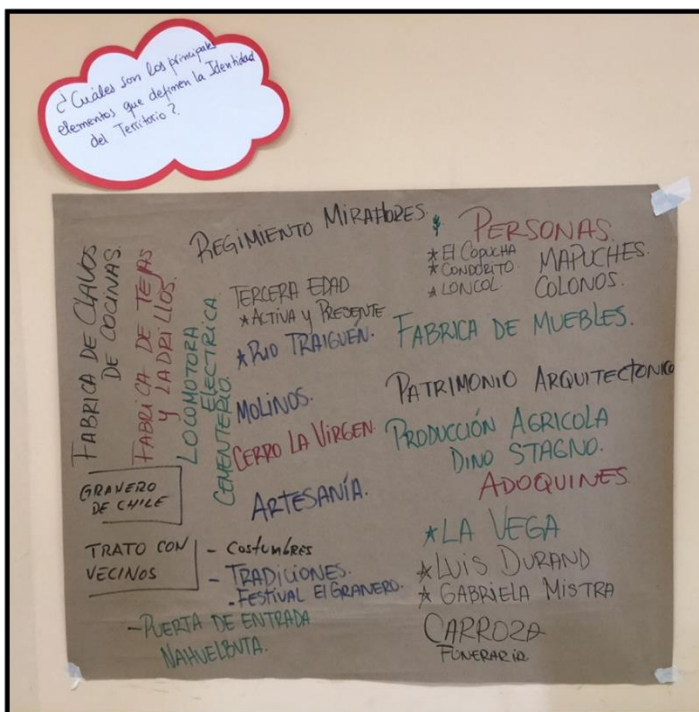 ¿Cuáles son los principales
elementos que definen la Identidad
del Territorio?
REGIMIENTO MIRAFLORES.
FABRICA DE CLAVOS
DE COCINAS.
FABRICA DE TEJAS
Y LADRILLOS.
LOCOMOTORA
ELECTRICA
CEMENTERIO
GRANERO
DE CHILE
TRATO CON
VECINOS
TERCERA EDAD
* ACTIVA Y PRESENTE
* RIO TRAIGUÉN.
MOLINOS.
CERRO LA VIRGEN.
ARTESANÍA.
- COSTUMBRES
- TRADICIONES.
- FESTIVAL El GRANERO.
- PUERTA DE ENTRADA
NAHUELBUTA.
PERSONAS.
* El COPUCHA
* CONDORITO.
* LONCOL.
MAPUCHES.
COLONOS.
FABRICA DE MUEBLES.
PATRIMONIO ARQUITECTONICO
PRODUCCIÓN AGRICOLA
DINO STAGNO.
ADOQUINES.
* LA VEGA
* LUIS DURAND
* GABRIELA MISTRA
CARROZA
FUNERARIA